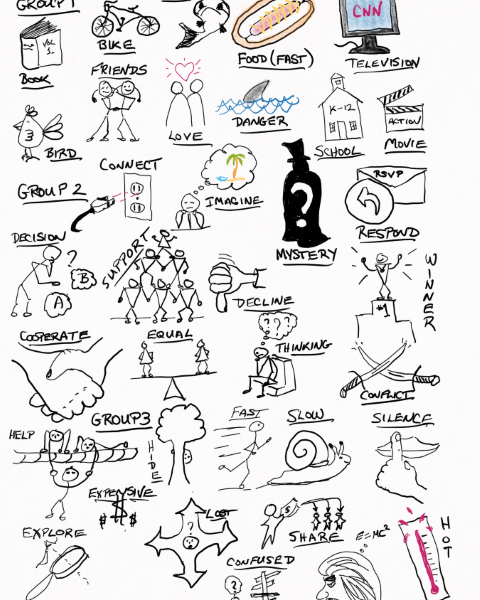 GROUP 1
CNN
VOL
1.
BOOK
BIKE
FOOD (FAST)
TELEVISION
FRIENDS
LOVE
DANGER
K-12
SCHOOL
ACTION
MOVIE
3
BIRD
GROUP 2
CONNECT
IMAGINE
?
MYSTERY
RSVP
RESPOND
DECISION
?
B
A
SUPPORT
DECLINE
#1
WINNER
COOPERATE
EQUAL
? ? ?
THINKING
CONFLICT
GROUP 3
HELP
HIDE
FAST
SLOW
SILENCE
EXPENSIVE
$
LOST
?
$
SHARE
E=MC²
HOT
EXPLORE
CONFUSED
?